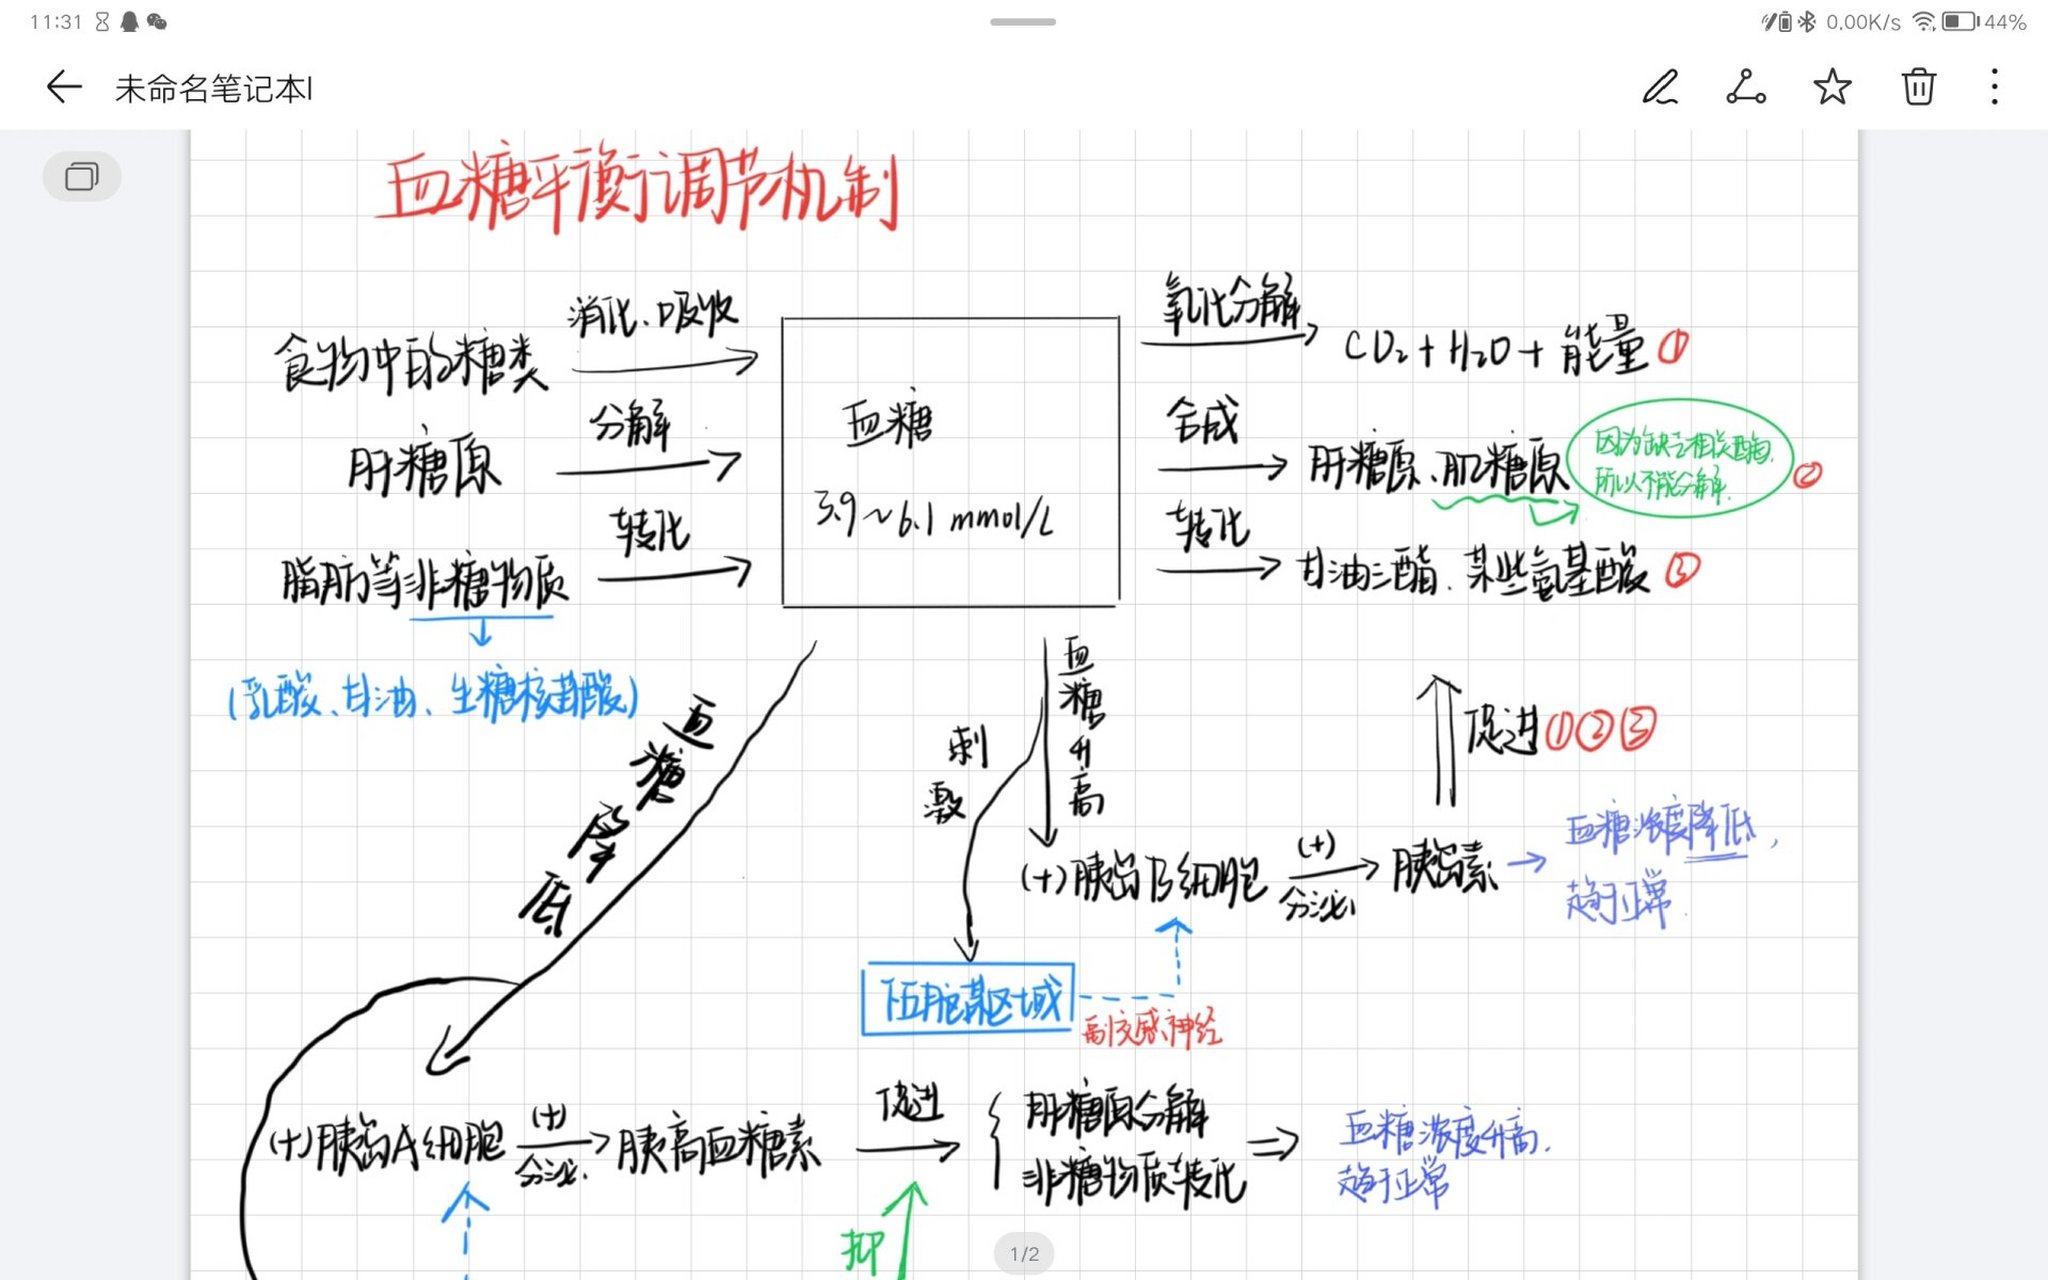 11:31
0.00K/s
44%
未命名笔记本I
血糖平衡调节机制
食物中的糖类
消化、吸收
氧化分解
CO₂+H₂O+能量①
肝糖原
分解
血糖
3.9~6.1 mmol/L
合成
肝糖原、肌糖原
因为缺乏相关酶,
所以不能分解.
②
脂肪等非糖物质
转化
转化
甘油三酯、某些氨基酸③
(乳酸、甘油、生糖氨基酸)
血糖降低
刺激
血糖升高
促进①②③
(+)胰岛B细胞
(+)
分泌
胰岛素
血糖浓度降低,
趋于正常
下丘脑某区域
副交感神经
(+)胰岛A细胞
(+)
分泌
胰高血糖素
促进
肝糖原分解
非糖物质转化
血糖浓度升高.
趋于正常
抑
1/2